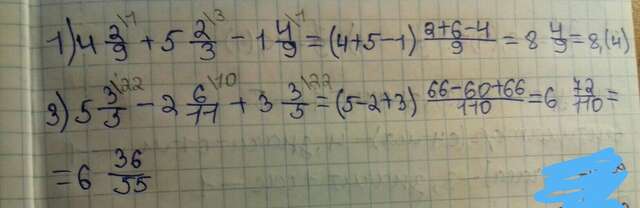 1) 4 2/9 \1 + 5 2/3 \3 - 1 4/9 \1 = (4+5-1) 2+6-4/9 = 8 4/9 = 8,(4)
3) 5 3/5 \22 - 2 6/11 \10 + 3 3/5 \22 = (5-2+3) 66-60+66/110 = 6 72/110 =
= 6 36/55